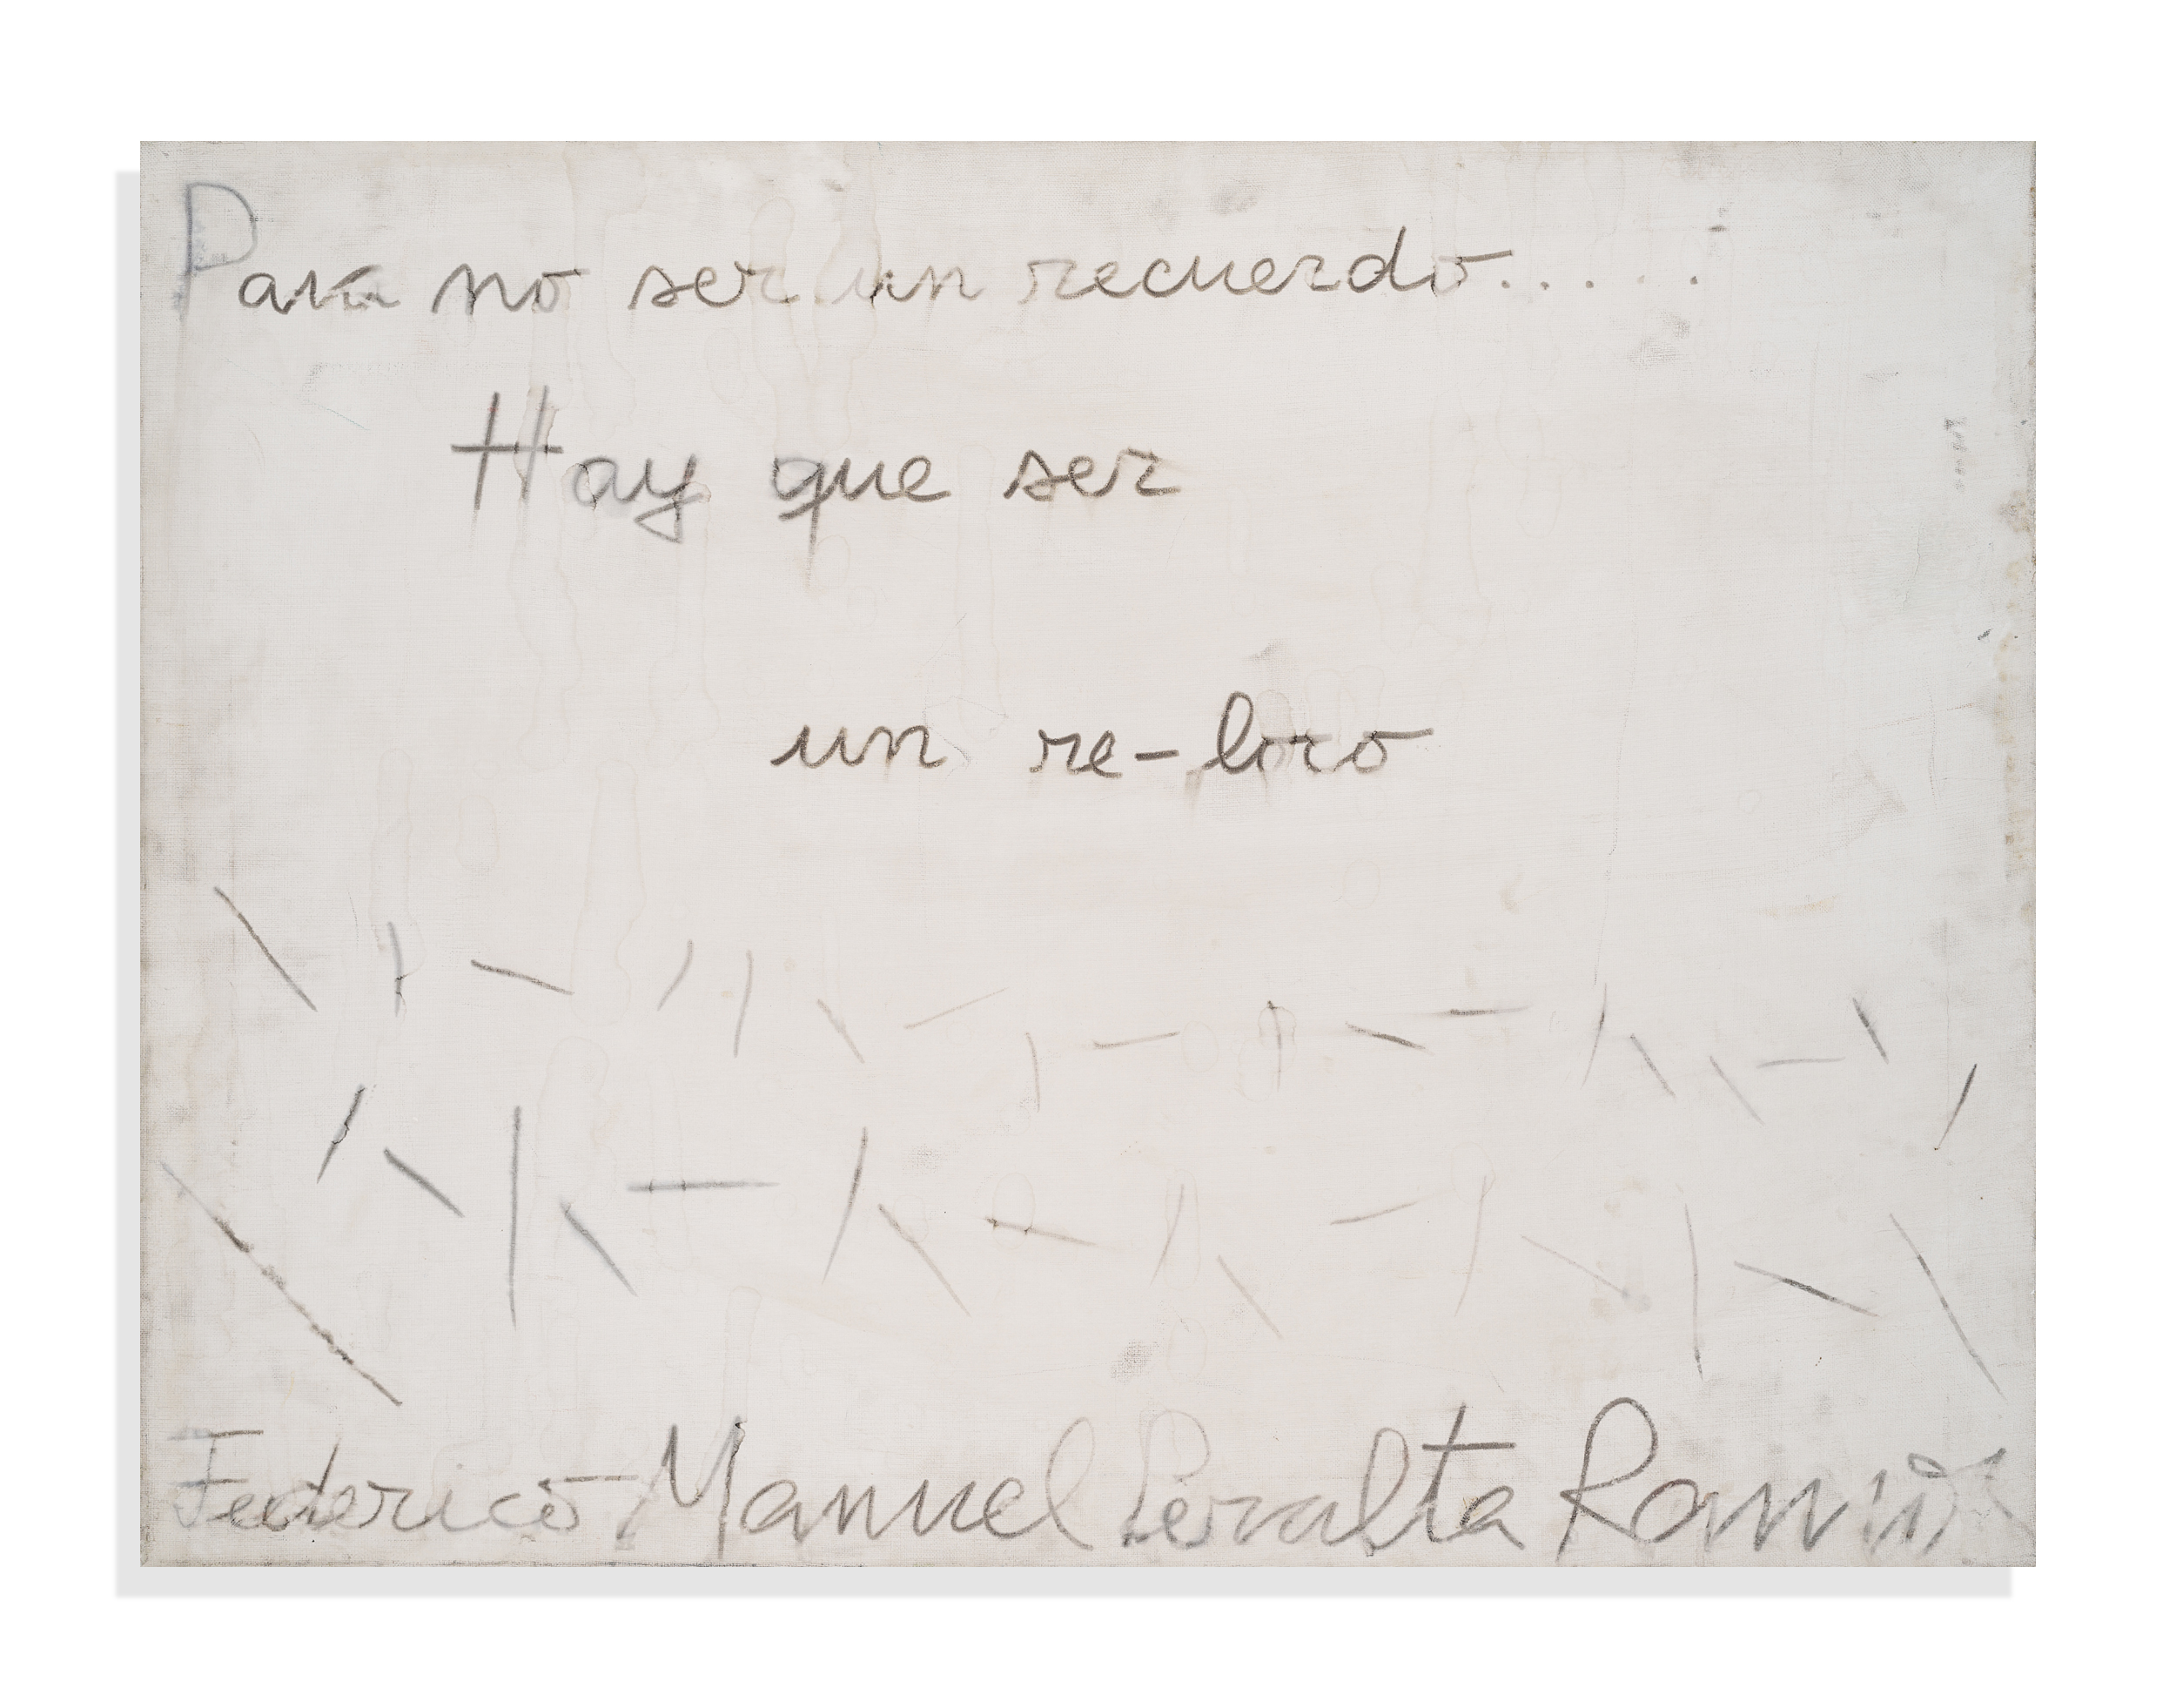 Para no ser un recuerdo.....
Hay que ser
un re-loco
Federico Manuel Peralta Ramos